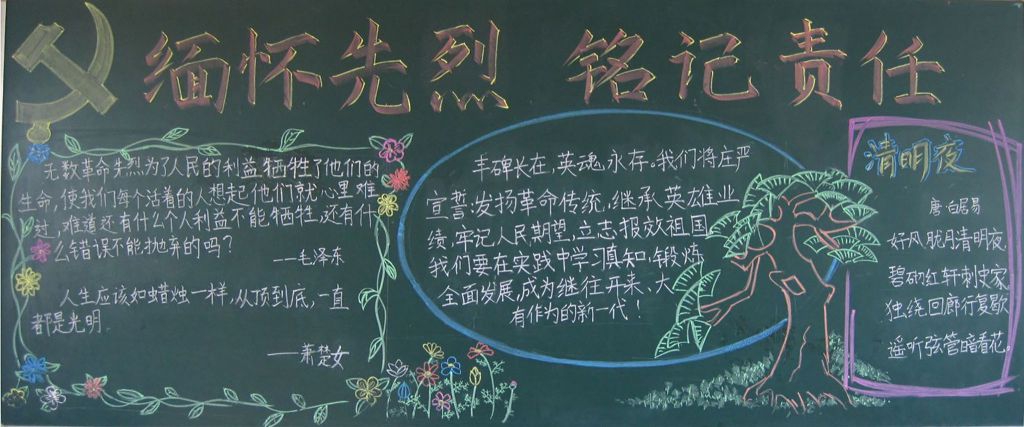 缅怀先烈 铭记责任
无数革命先烈为了人民的利益牺牲了他们的
生命,使我们每个活着的人想起他们就心里难
过,难道还有什么个人利益不能牺牲,还有什
么错误不能抛弃的吗?
---毛泽东
人生应该如蜡烛一样,从顶到底,一直
都是光明。
——萧楚女
丰碑长在,英魂永存。我们将庄严
宣誓:发扬革命传统,继承英雄业
绩,牢记人民期望,立志报效祖国。
我们要在实践中学习真知,锻炼
全面发展,成为继往开来、大
有作为的新一代!
清明夜
唐·白居易
好风胧月清明夜,
碧砌红轩刺史家。
独绕回廊行复歇,
遥听弦管暗看花。